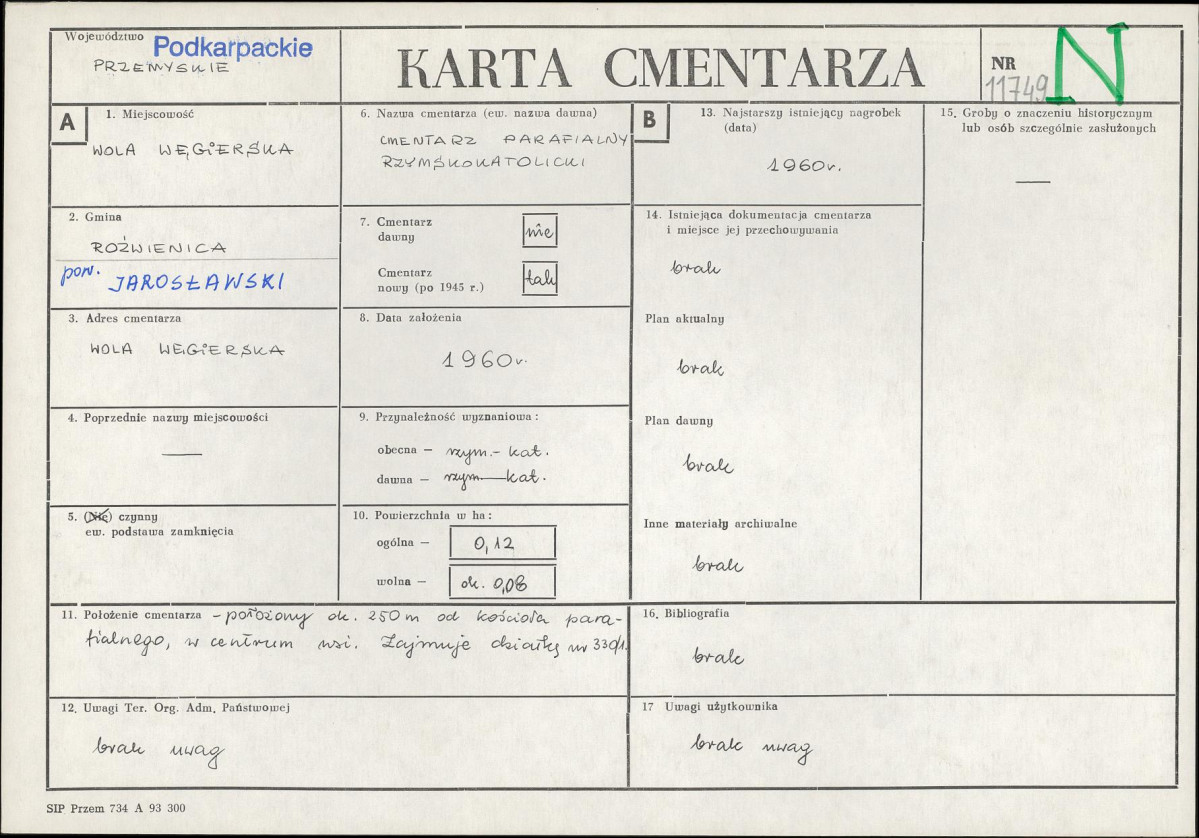 Województwo Podkarpackie
PRZEMYSKIE
KARTA CMENTARZA
NR
11749
N
A
1. Miejscowość
WOLA WĘGIERSKA
2. Gmina
ROŹWIENICA
pow. JAROSŁAWSKI
3. Adres cmentarza
WOLA WĘGIERSKA
4. Poprzednie nazwy miejscowości
—
5. (Nie) czynny
ew. podstawa zamknięcia
6. Nazwa cmentarza (ew. nazwa dawna)
CMENTARZ PARAFIALNY
RZYMSKOKATOLICKI
7. Cmentarz
dawny nie
Cmentarz
nowy (po 1945 r.) tak
8. Data założenia
1960r.
9. Przynależność wyznaniowa:
obecna — rzym.- kat.
dawna — rzym.-kat.
10. Powierzchnia w ha:
ogólna — 0,12
wolna — ok. 0,08
11. Położenie cmentarza - położony ok. 250 m od kościoła para-
fialnego, w centrum wsi. Zajmuje działkę nr 330/1.
12. Uwagi Ter. Org. Adm. Państwowej
brak uwag
B
13. Najstarszy istniejący nagrobek
(data)
1960r.
14. Istniejąca dokumentacja cmentarza
i miejsce jej przechowywania
brak
Plan aktualny
brak
Plan dawny
brak
Inne materiały archiwalne
brak
15. Groby o znaczeniu historycznym
lub osób szczególnie zasłużonych
—
16. Bibliografia
brak
17 Uwagi użytkownika
brak uwag
SIP Przem 734 A 93 300